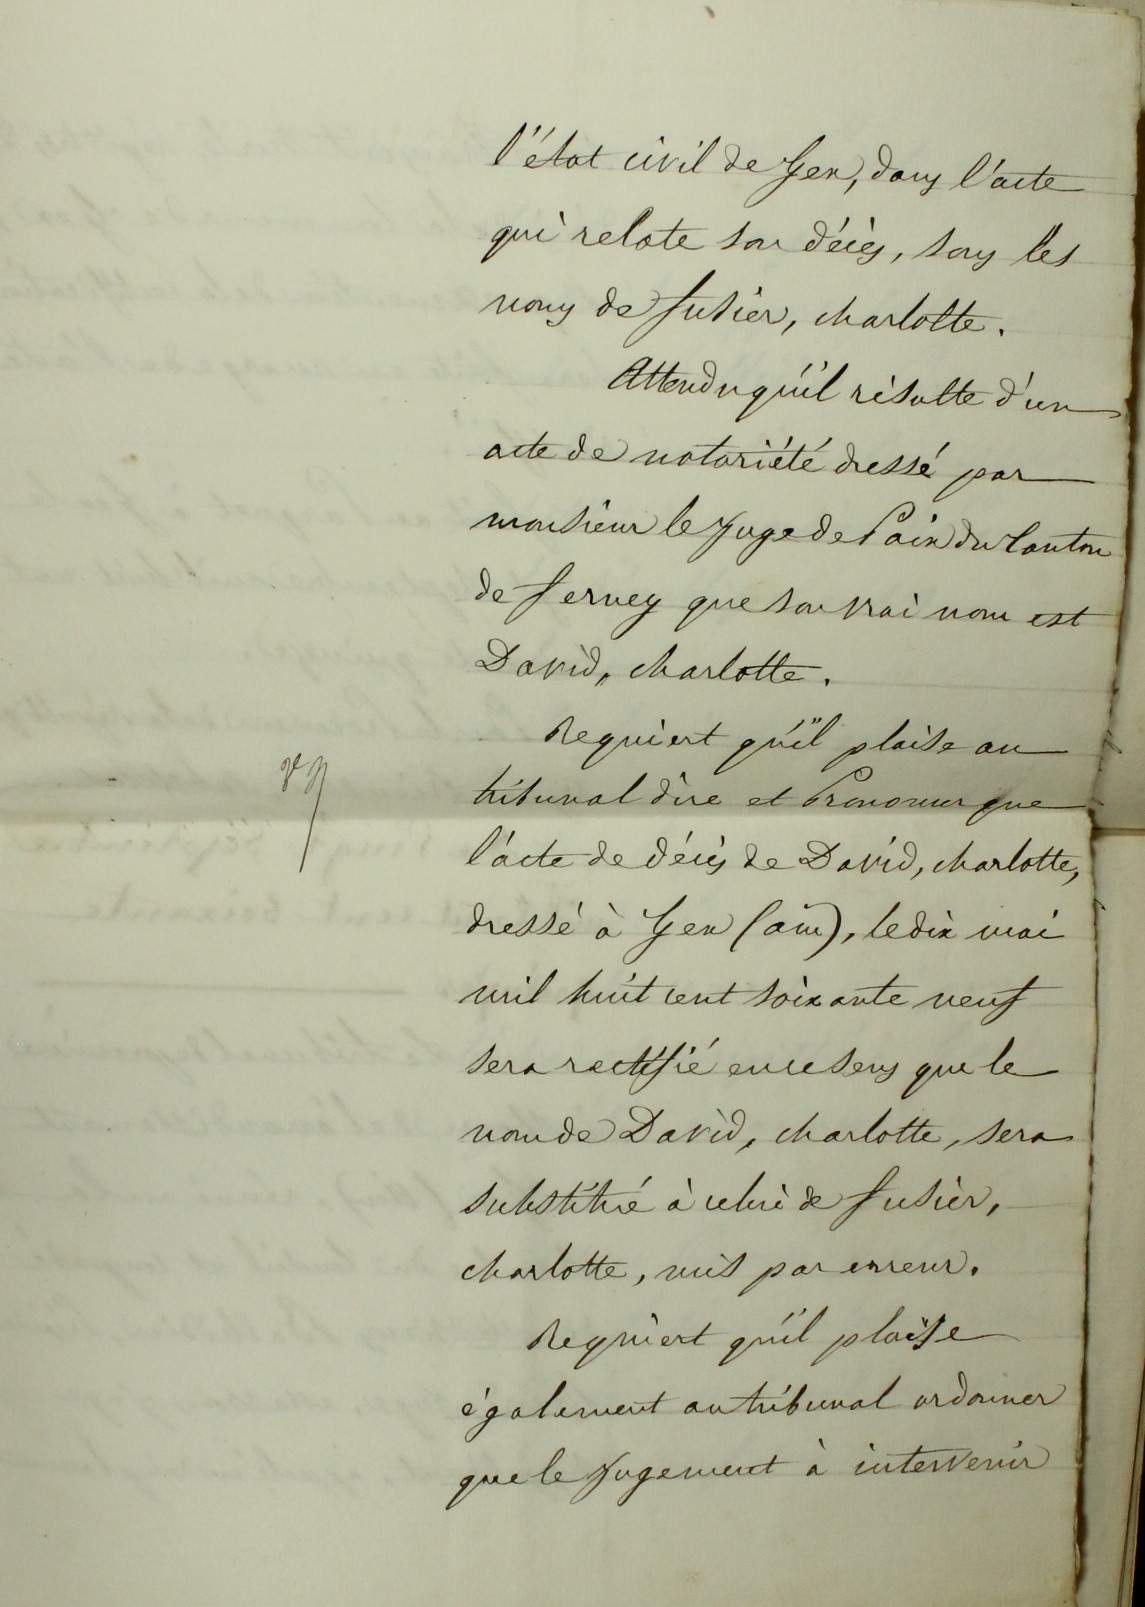 l'état civil de Gex, dans l'acte
qui relate son décès, sous les
noms de Fusier, charlotte.
Attendu qu'il résulte d'un
acte de notoriété dressé par
monsieur le Juge de Paix du Canton
de Ferney que son vrai nom est
David, charlotte.
Requiert qu'il plaise au
tribunal dire et Prononcer que
l'acte de décès de David, charlotte,
dressé à Gex (ain), le dix mai
mil huit cent soixante neuf
sera rectifié en ce sens que le
nom de David, charlotte, sera
substitué à celui de Fusier,
charlotte, mis par erreur.
Requiert qu'il plaise
également au tribunal ordonner
que le Jugement à intervenir